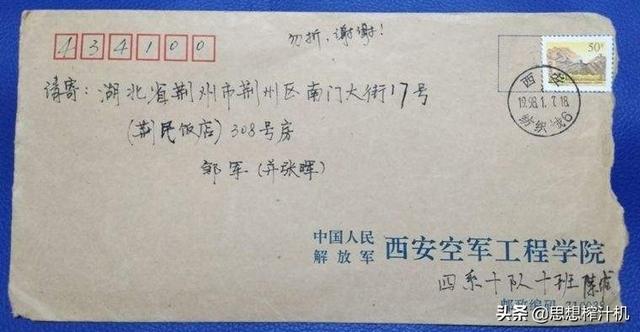 434100
勿折,谢谢!
50分
西安
1998.1.7.18
纺织城6
请寄:湖北省荆州市荆州区南门大街17号
(荆民饭店)308号房
邹军(并张晖)
中国人民
解放军
西安空军工程学院
四系十队十班陈
邮政编码
头条 @思想榨汁机